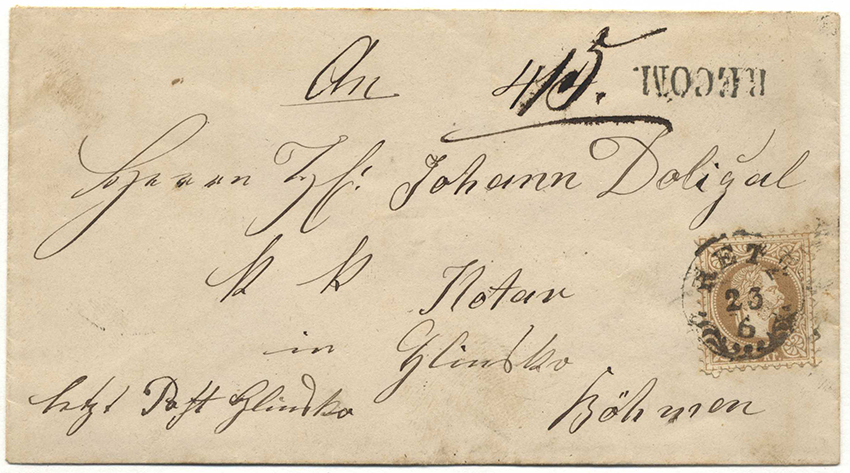 An 415. RECOM.
Herrn Johann Doližal
k k Notar
in Glinsko
letzt Post Glinsko Böhmen
RETZ
23
6